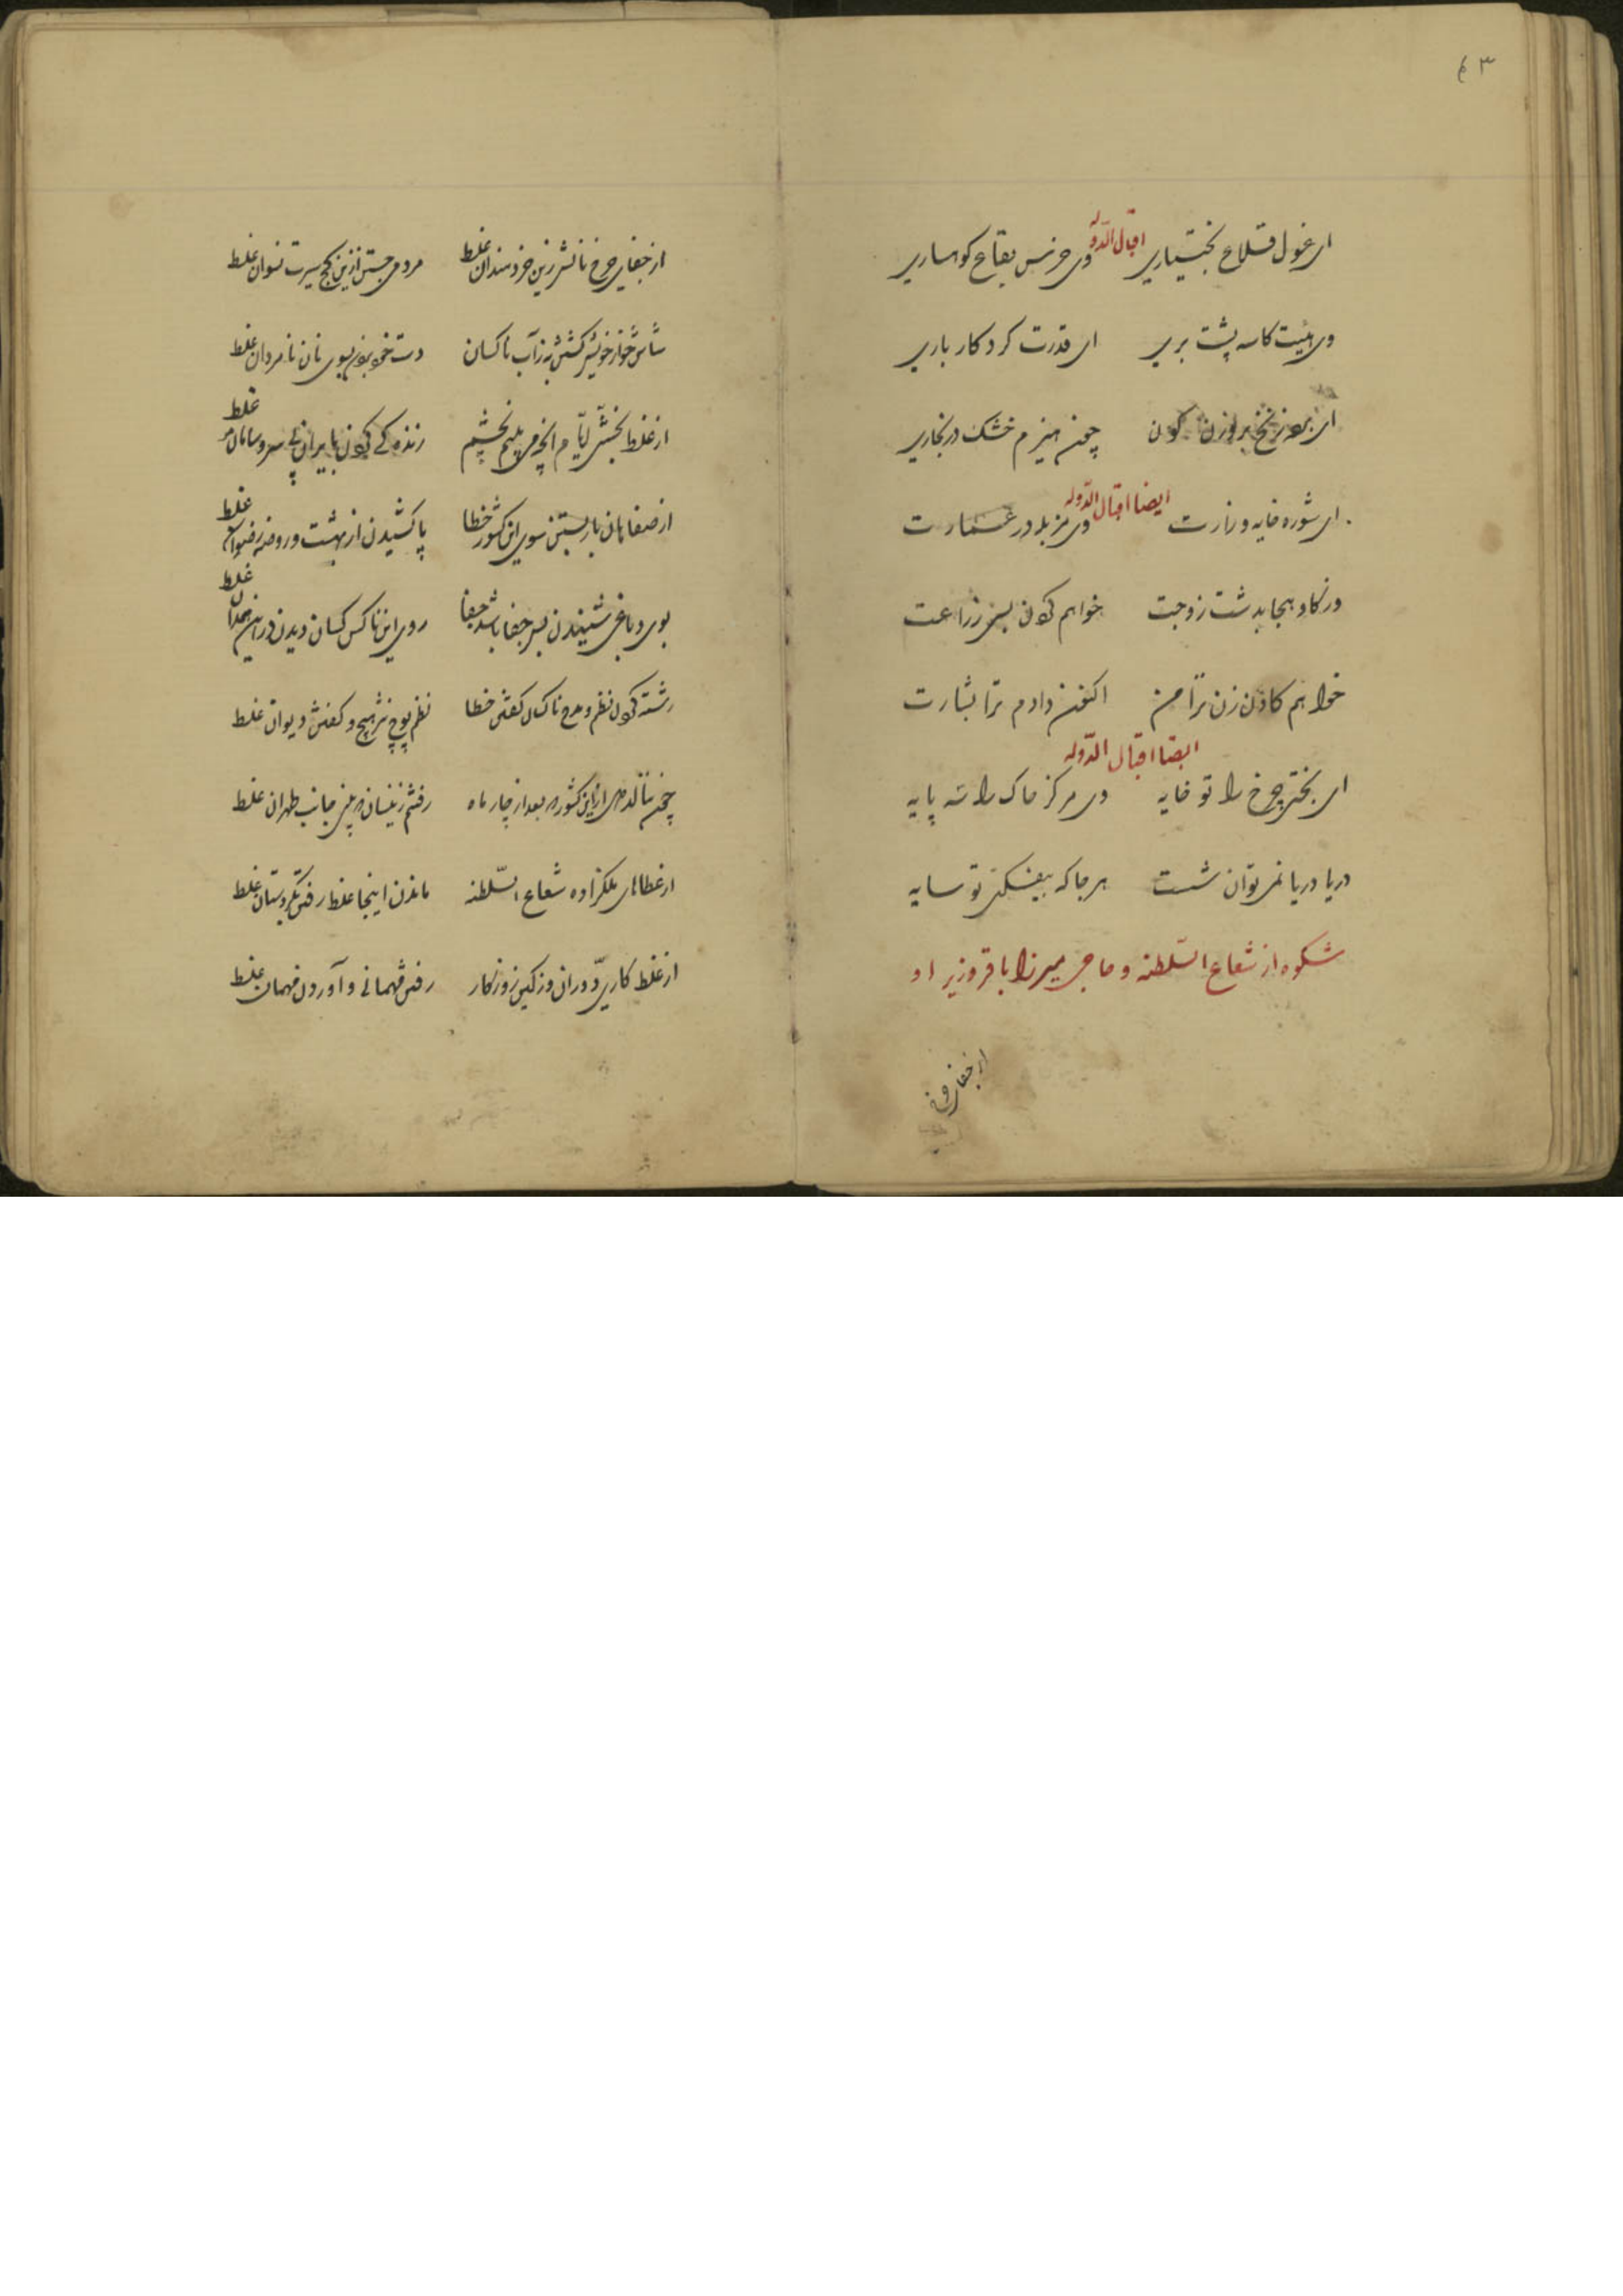 ۴۳
اقبال الدوله
ای غول قلاع بختیاری وی خرس بقاع کوهساری
وی هیئت کاسه پشت بری ای قدرت کردکار باری
ای زنخ بروزن کون چون هیزم خشک در بخاری
ایضا اقبال الدوله
ای شوره خایه وزارت وی مزبله در عمارت
ورنکاو بجا بدشت زوجت خواهم کردن بسی زراعت
خواهم کادن زن ترا من اکنون دادم ترا بشارت
ایضا اقبال الدوله
ای بختی چرخ را تو خایه وی مرکز خاک را سه پایه
دریا دریا نمی توان شست هر جا که بیفکنی تو سایه
شکوه از شعاع السلطنه و حاجی میرزا باقر وزیر او
از جفای چرخ
از جفای چرخ نالش زین خردمندان غلط مردمی جستن ازین کج سیرت نسوان غلط
کشتن به ز آب ناکسان دست خود بردن بسوی نان نامردان غلط
از غلط بخشی ایام آنچه می بینم بچشم زنده کی کردن بایران بی سر و سامان غلط
از صفاهان بار بستن سوی این کشور خطا پا کشیدن از بهشت و روضه رضوان غلط
بوی دباغی شنیدن بس جفا باشد جفا روی این ناکس کسان دیدن در این همدان غلط
رشته کردن نظم و مدح ناکسان کفتن خطا نظم پوچ و نثر هیچ و کفتن دیوان غلط
بعد از چار ماه رفتنم زینسان جانب طهران غلط
از عطاهای ملکزاده شعاع السلطنه ماندن اینجا غلط رفتن بکردستان غلط
از غلط کاری دوران وز کین روزکار رفتن مهمانی و آوردن مهمان غلط